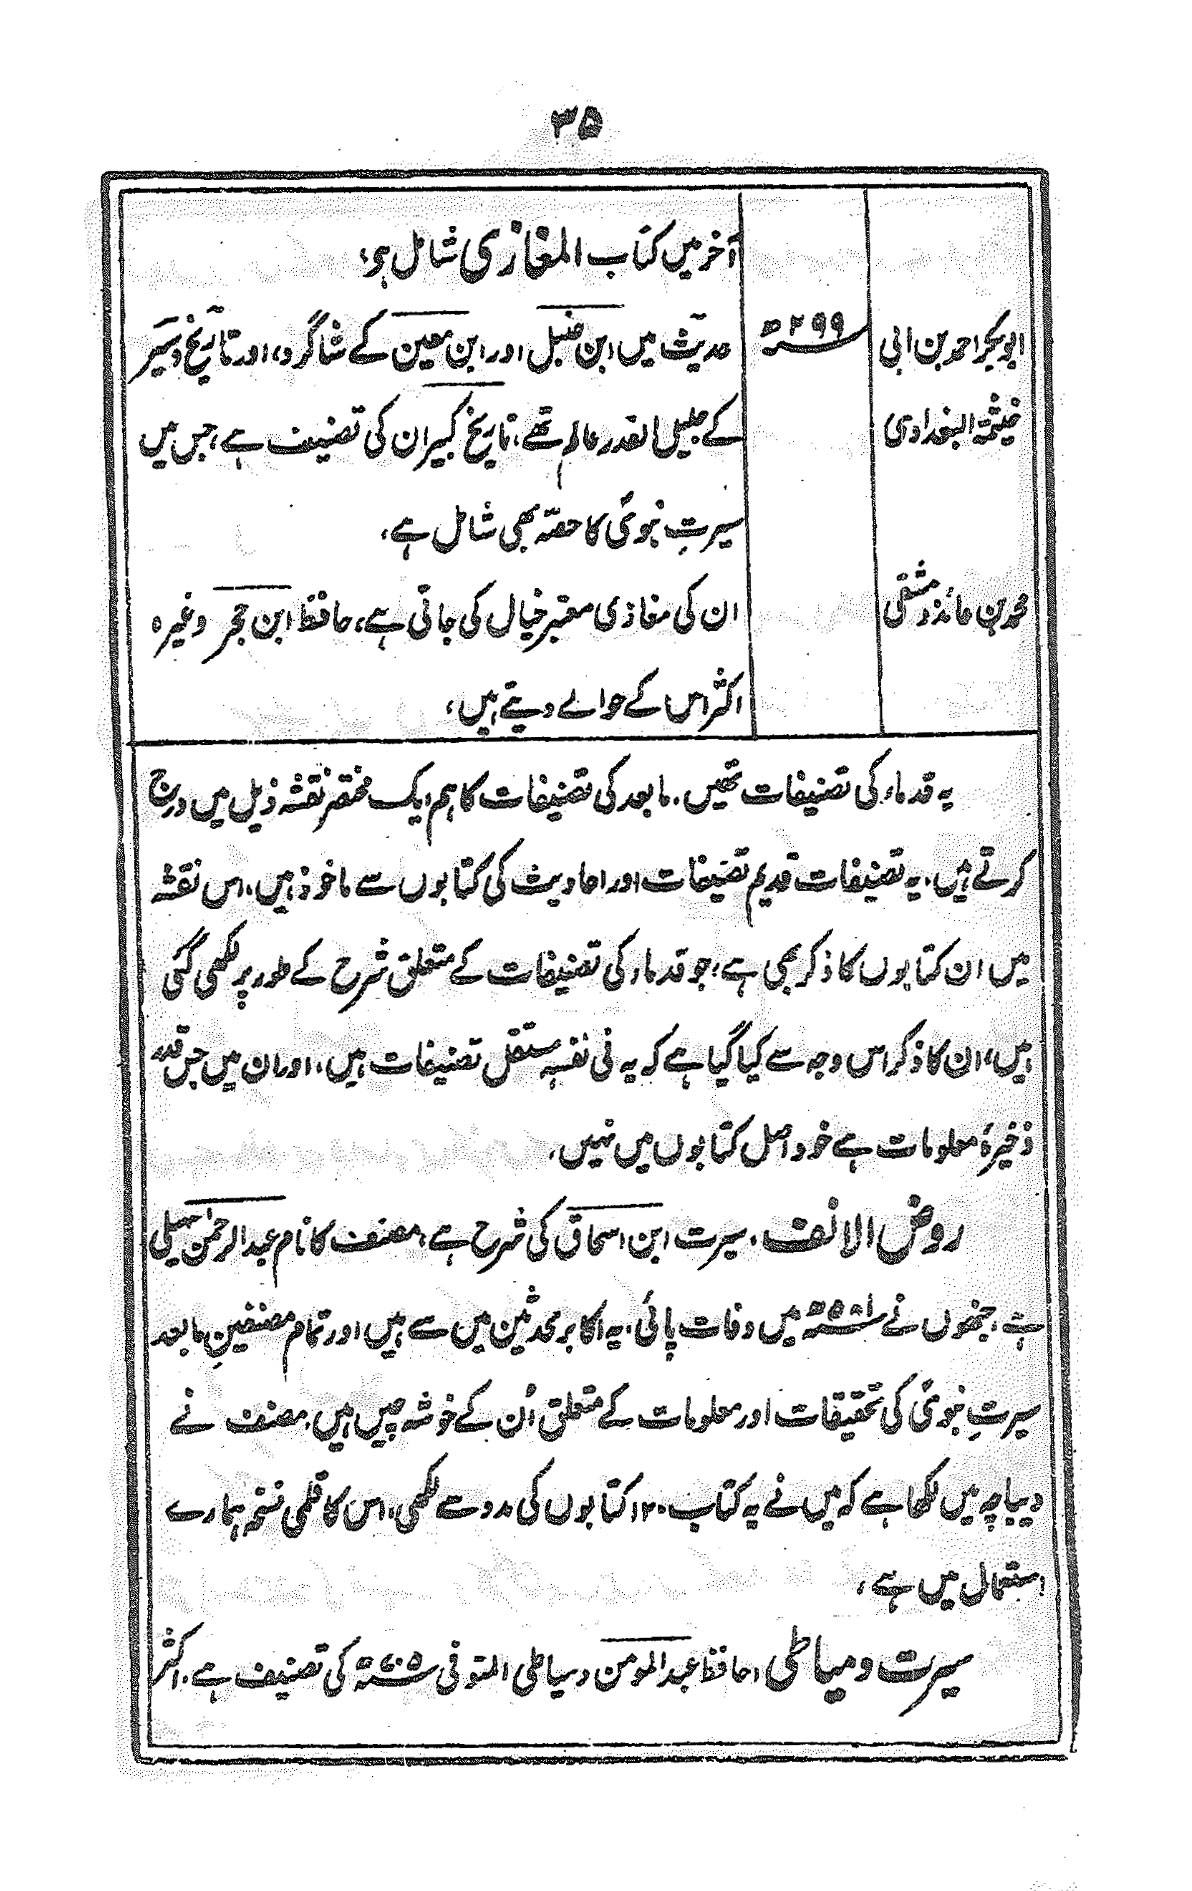 ۳۵
آخر میں کتاب المغازی شامل ہو،
ابوبکر احمد بن ابی ۲۹۹ھ حدیث میں ابن حنبل اور ابن معین کے شاگرد، اور تاریخ و سیر
خیثمۃ البغدادی کے جلیل القدر عالم تھے، تاریخ کبیر ان کی تصنیف ہے، جس میں
سیرتِ نبویؐ کا حصّہ بھی شامل ہے،
محمد بن عائذ دمشقی ان کی مغازی معتبر خیال کی جاتی ہے، حافظ ابن حجر وغیرہ
اکثر اس کے حوالے دیتے ہیں،
یہ قدماء کی تصنیفات تھیں، مابعد کی تصنیفات کا ہم ایک مختصر نقشہ ذیل میں درج
کرتے ہیں، یہ تصنیفات قدیم تصنیفات اور احادیث کی کتابوں سے ماخوذ ہیں، اس نقشہ
میں ان کتابوں کا ذکر بھی ہے، جو قدماء کی تصنیفات کے متعلق شرح کے طور پر لکھی گئی
ہیں، ان کا ذکر اس وجہ سے کیا گیا ہے کہ یہ فی نفسہٖ مستقل تصنیفات ہیں، اور ان میں جس قدر
ذخیرۂ معلومات ہے خود اصل کتابوں میں نہیں،
روض الانف، سیرت ابن اسحاق کی شرح ہے، مصنف کا نام عبدالرحمٰن سہیلی
ہے، جنھوں نے ۵۸۱ھ میں وفات پائی، یہ اکابر محدثین میں سے ہیں اور تمام مصنفینِ مابعد
سیرتِ نبویؐ کی تحقیقات اور معلومات کے متعلق اُن کے خوشہ چیں ہیں، مصنف نے
دیباچہ میں لکھا ہے کہ میں نے یہ کتاب ۱۲۰ کتابوں کی مدد سے لکھی، اس کا قلمی نسخہ ہمارے
استعمال میں ہے،
سیرت دمیاطی، حافظ عبدالمومن دمیاطی المتوفی ۷۰۵ھ کی تصنیف ہے، اکثر